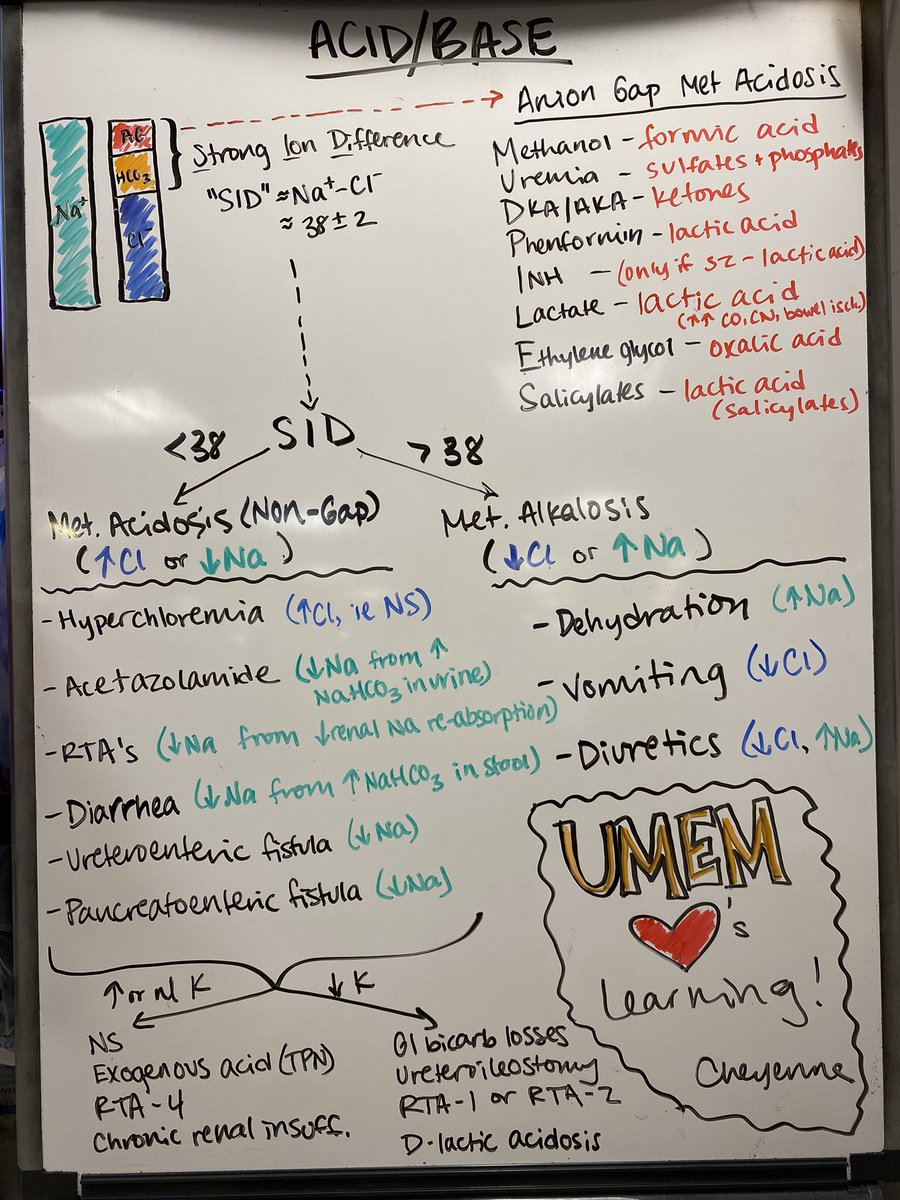 ACID/BASE
Na⁺
AG
HCO₃
Cl⁻
Strong Ion Difference
"SID" ≈ Na⁺-Cl⁻
≈ 38 ± 2
Anion Gap Met Acidosis
Methanol - formic acid
Uremia - sulfates + phosphates
DKA/AKA - ketones
Phenformin - lactic acid
INH - (only if sz - lactic acid)
Lactate - lactic acid
(↑↑ CO, CN, bowel isch.)
Ethylene glycol - oxalic acid
Salicylates - lactic acid
(salicylates)
<38 SID >38
Met. Acidosis (Non-Gap)
(↑Cl or ↓Na)
- Hyperchloremia (↑Cl, ie NS)
- Acetazolamide (↓Na from ↑
NaHCO₃ in urine)
- RTA's (↓Na from ↓renal Na re-absorption)
- Diarrhea (↓Na from ↑NaHCO₃ in stool)
- Ureteroenteric fistula (↓Na)
- Pancreatoenteric fistula (↓Na)
↑ or nl K
NS
Exogenous acid (TPN)
RTA-4
Chronic renal insuff.
↓K
GI bicarb losses
Ureteroileostomy
RTA-1 or RTA-2
D-lactic acidosis
Met. Alkalosis
(↓Cl or ↑Na)
- Dehydration (↑Na)
- Vomiting (↓Cl)
- Diuretics (↓Cl, ↑Na)
UMEM
♥'s
Learning!
Cheyenne